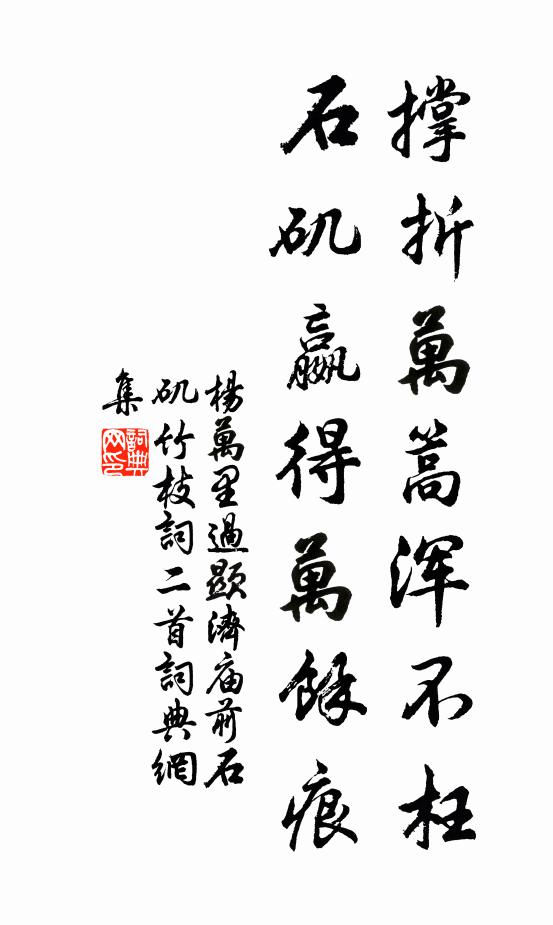 撑折萬蒿浑不枉
石矶赢得萬餘痕
楊萬里過顯濟庙前石
矶竹枝詞二首詞典網
集
詞典
网印